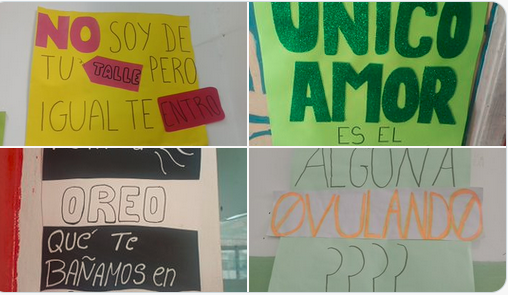 NO SOY DE
TU TALLE PERO
IGUAL TE ENTRO
ÚNICO
AMOR
ES EL
OREO
QUé Te
BAÑAMOS en
ALGUNA
OVULANDO
????